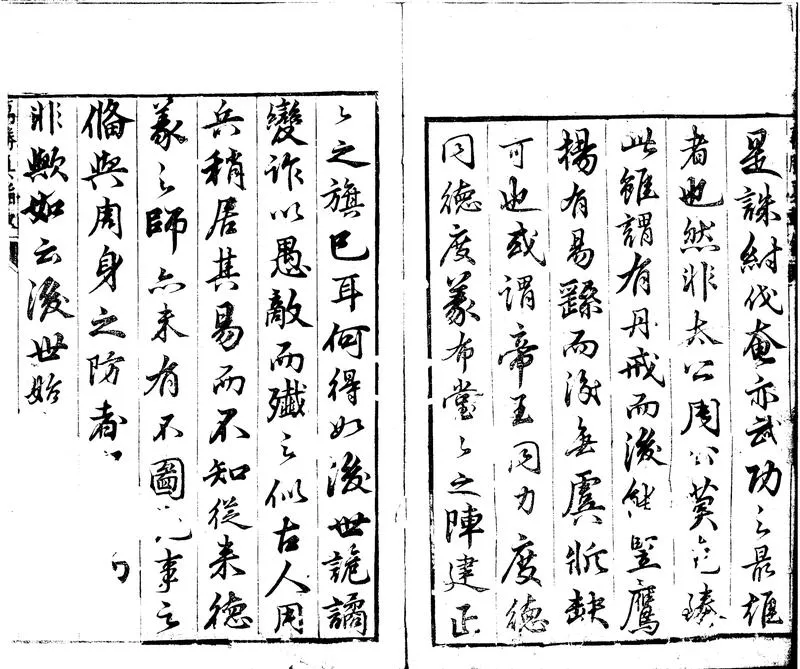 是誅紂伐奄亦武功之最雄
者也然非太公周公莫克臻
此雖謂有丹戒而後能豎鷹
揚有易繇而後無虞斨缺
可也或謂帝王同力度德
同德度義布堂々之陣建正
々之旗已耳何得如後世詭譎
變詐以愚敵而殲之似古人用
兵稍居其易而不知從來德
義之師亦未有不圖事之
備與周身之防者
非歟如云後世始